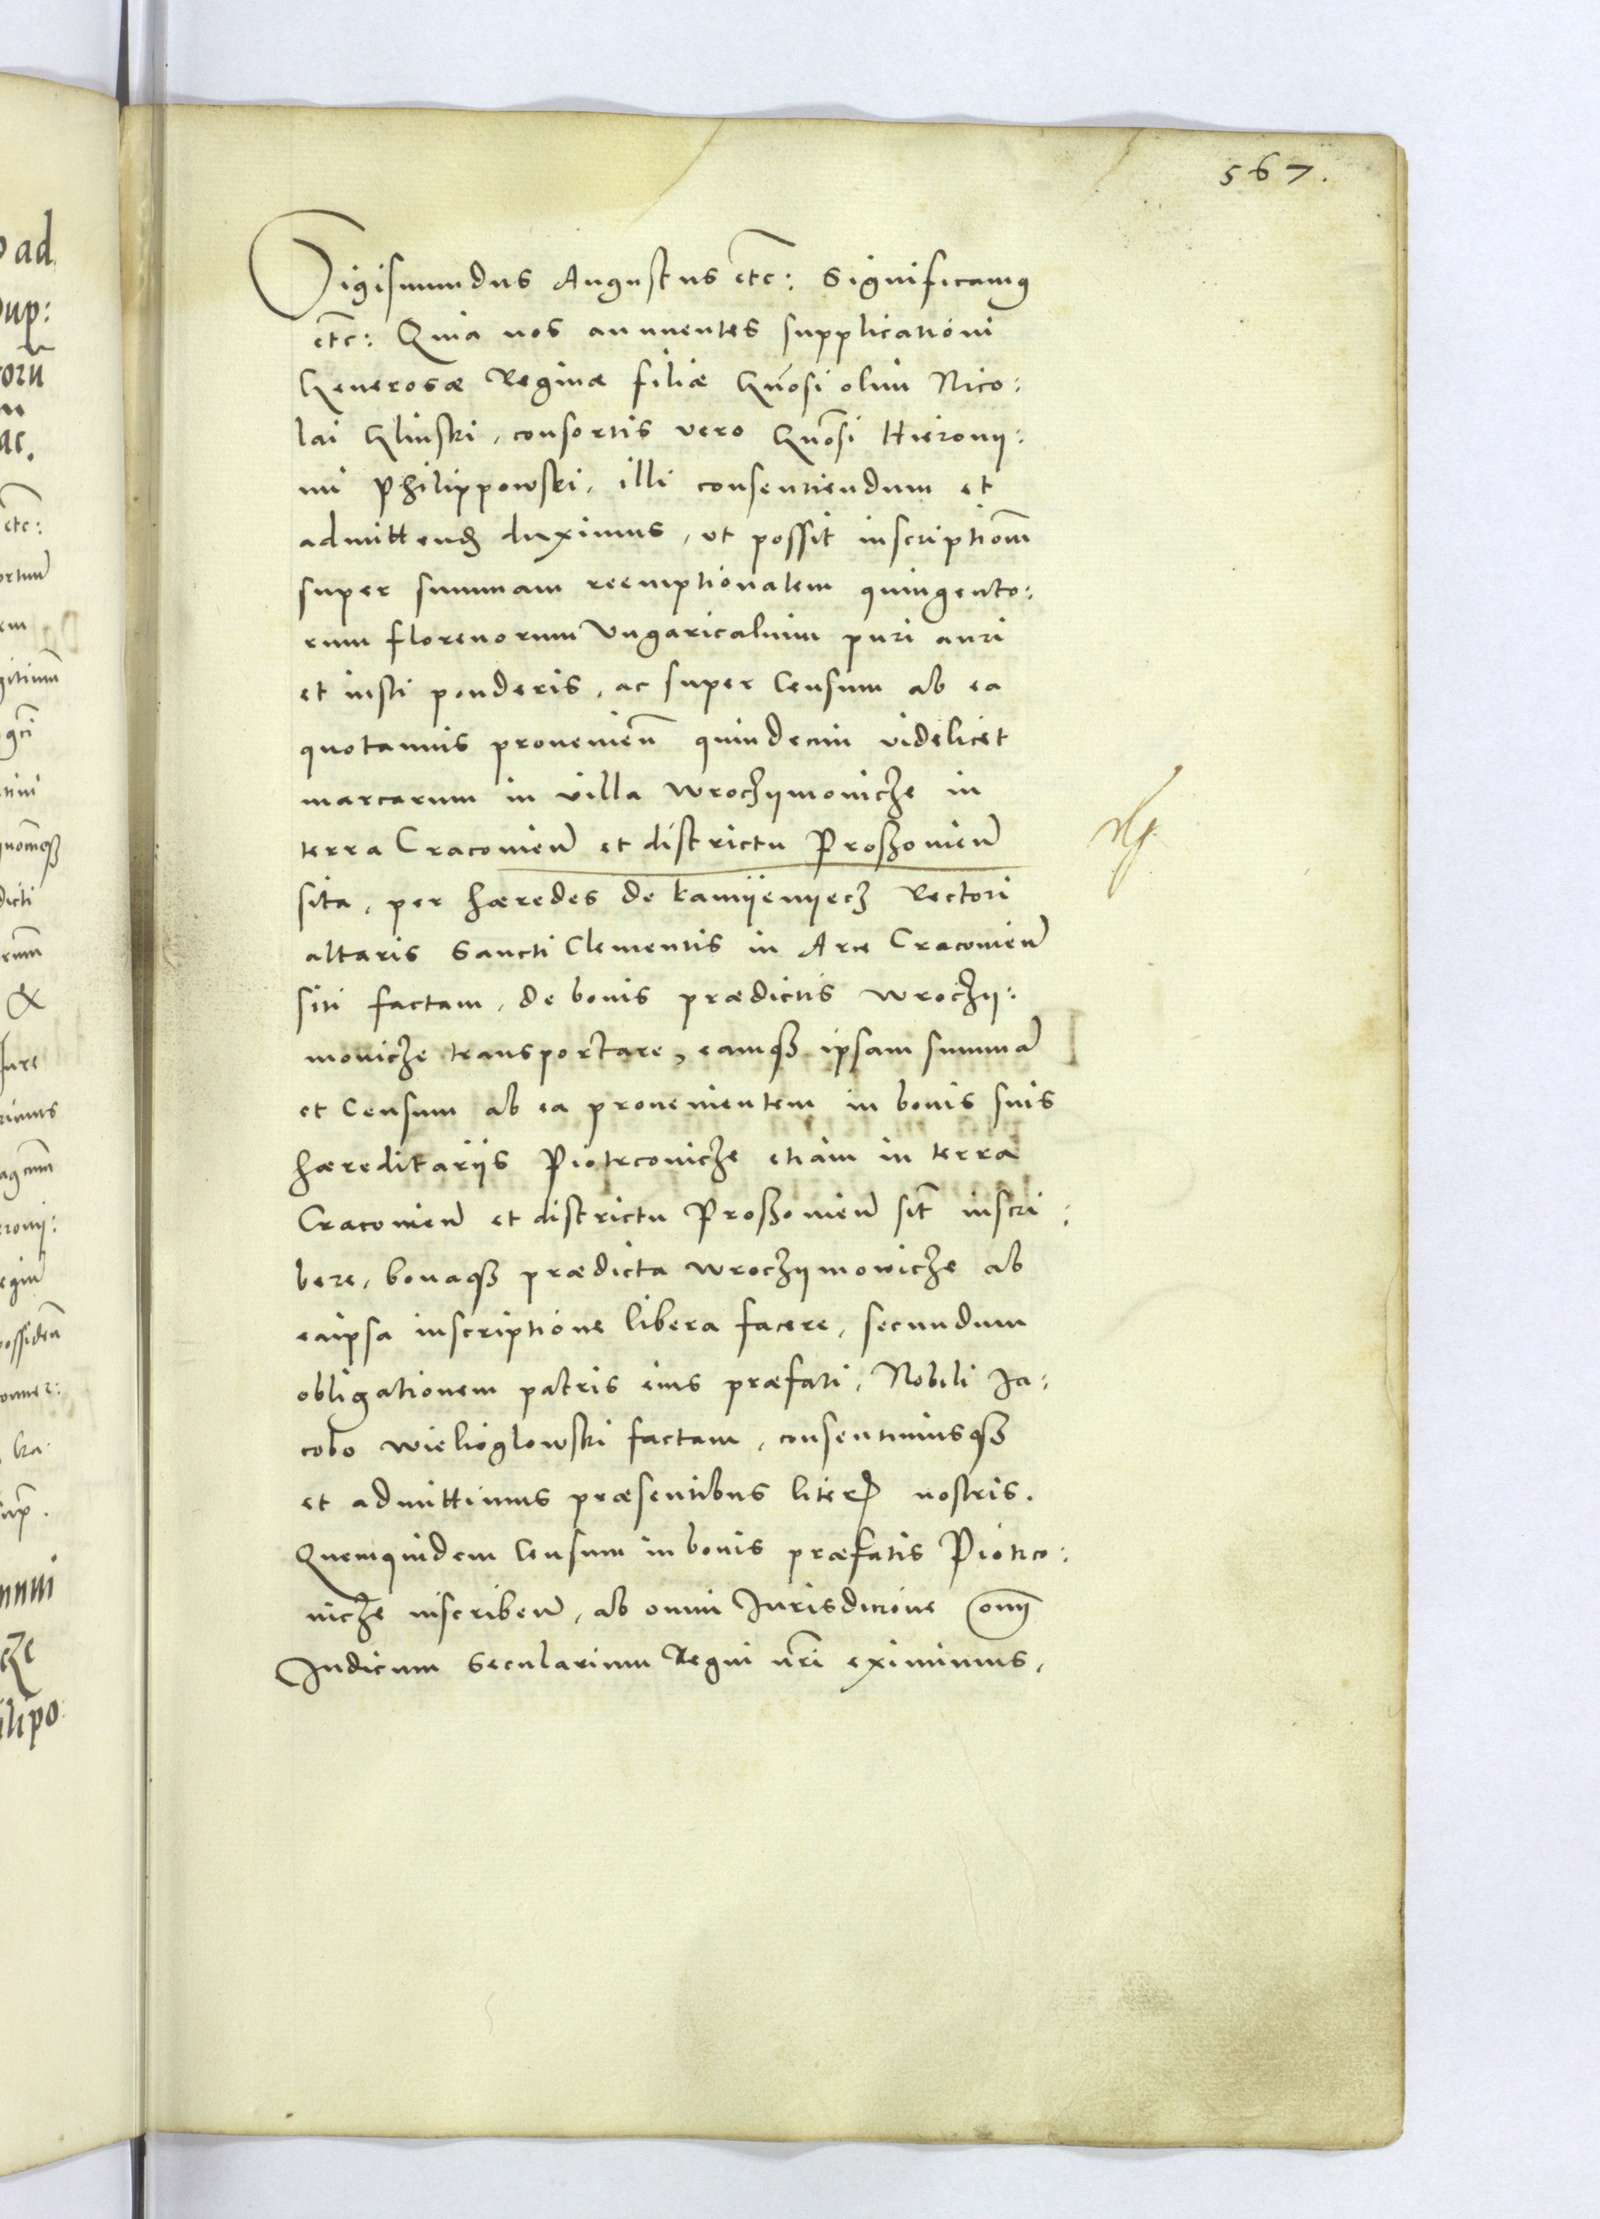 567.
Sigismundus Augustus etc: Significamus
etc: Quia nos annuentes supplicationi
Generosæ Reginæ filiæ Gnosi olim Nico:
lai Glinski, consortis vero Gnosi Hierony:
mi Philippowski, illi consentiendum et
admittend duximus, ut possit inscriptiom
super summam reemptionalem quingento:
rum florenorum Ungaricalium puri auri
et iusti ponderis, ac super Censum ab ea
quotannis provenien quindecim videlicet
marcarum in villa Wroczymovicze in
terra Cracovien et districtu Proszovien
sita, per hæredes de Kamyenyecz Rectori
altaris Sancti Clementis in Arce Cracovien
siti factam, de bonis prædictis Wroczy:
movicze transportare, eamq3 ipsam summā
et Censum ab ea provenientem in bonis suis
hæreditariis Piotrcovicze etiam in terra
Cracovien et districtu Proszovien sit inscri:
bere, bonaq3 prædicta Wroczymovicze ab
eaipsa inscriptione libera facere, secundum
obligationem patris eius præfati, Nobili Ja:
cobo Wielioglowski factam, consentimusq3
et admittimus præsentibus liter nostris.
Quemquidem Censum in bonis præfatis Piotrco:
vicze inscriben, ab omni Jurisdicione omī
Judicum Secularium Regni nri eximimus,